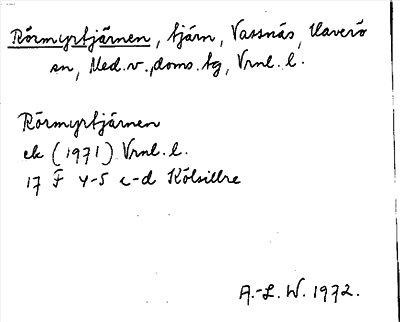 Rörmyrtjärnen, tjärn, Vassnäs, Haverö
sn, Med.v., doms. tg, Vrnl. l.
Rörmyrtjärnen
ek (1971) Vrnl. l.
17 F 4-5 c-d Kölsillre
A.-L. W. 1972.